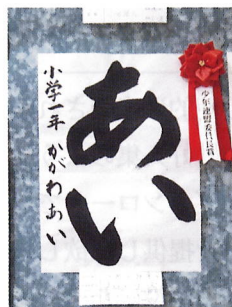 あい
小学一年 かがわあい
少年連盟委員長賞